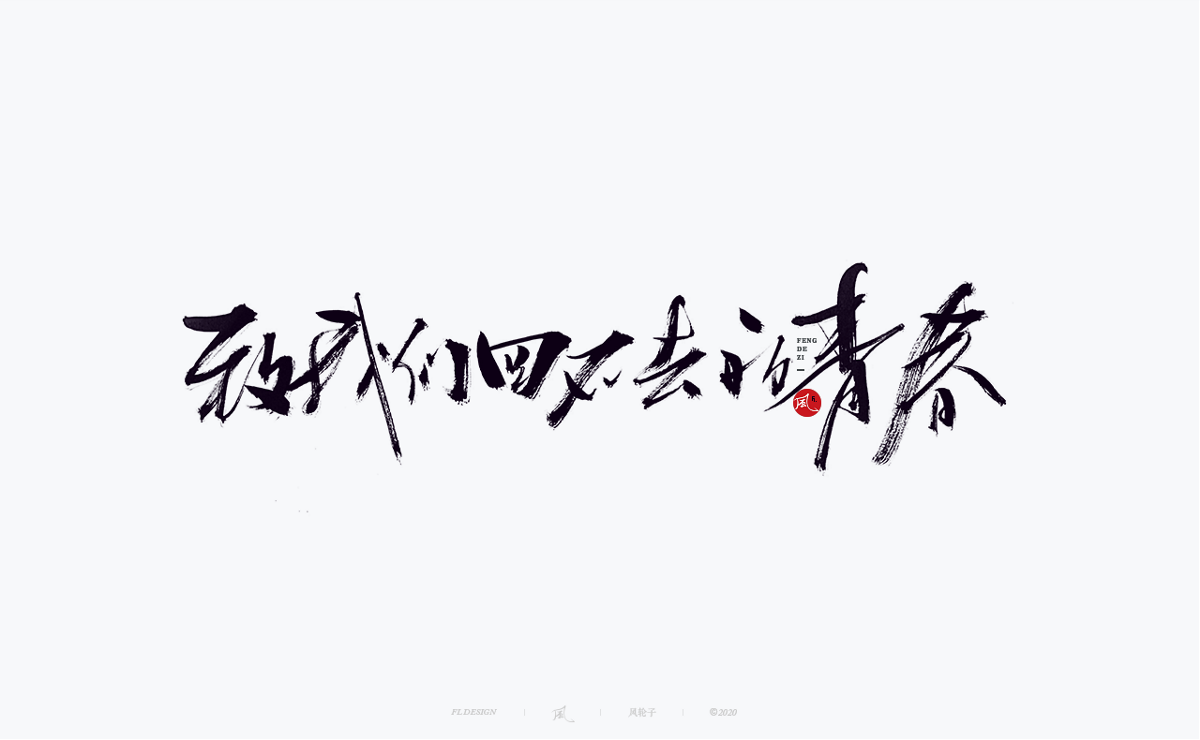 致我们回不去的青春
FENG
DE
ZI
風
FL.DESIGN 風 风轮子 ©2020